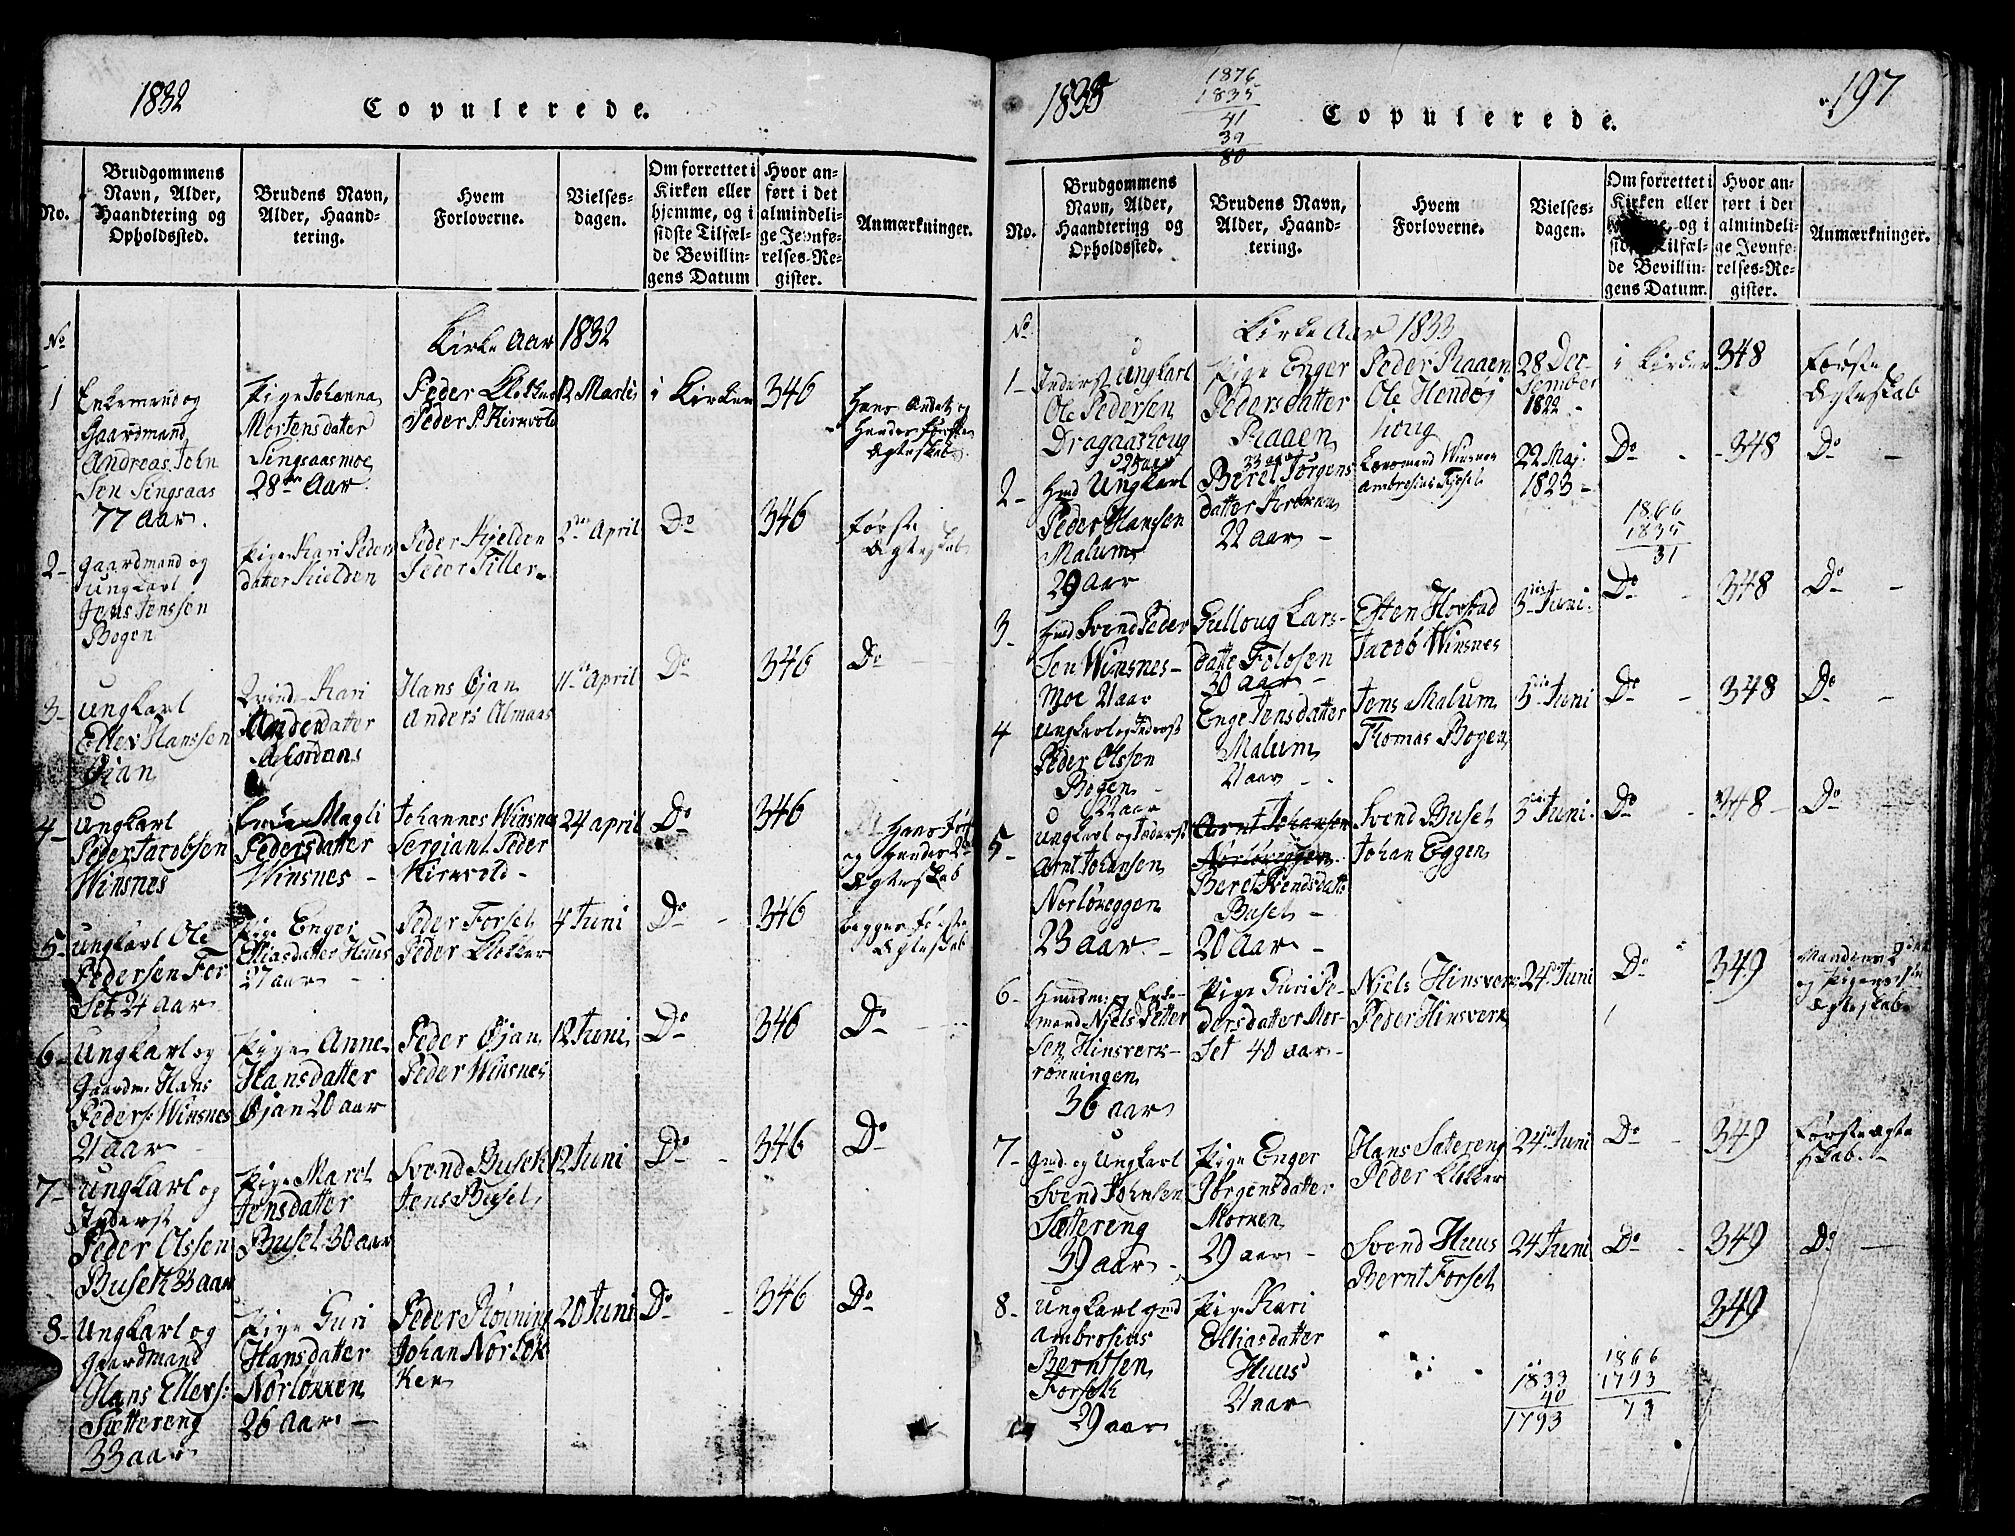 1832
Copulerede.
No.
Brudgommens
Navn, Alder,
Haandtering og
Opholdssted.
Brudens Navn,
Alder, Haand-
tering.
Hvem
Forloverne.
Vielses-
dagen.
Om forrettet i
Kirken eller
hjemme, og i
sidste Tilfæl-
de Bevillin-
gens Datum
Hvor an-
ført i det
almindeli-
ge Jevnfø-
relses-Re-
gister.
Anmærkninger.
No
Kirke Aar 1832
1
Enkemand og
Gaardmand
Andreas John
Sen Singsaas
77 Aar.
Pige Johanna
Mortensdatter
Singsaasmoe
28 Aar
Peder Klokker
Peder P. Kirkvold
12 Martii
i Kirken
346
Hans Andet og
Hendes første
Ægteskab
2-
Gaardmand og
Ungkarl
Jens Jenssen
Bogen
Pige Kari Peders
datter Kielden
Peder Kjelden
Peder Tiller
2 April
Do
346
Første
Ægteskab
3-
Ungkarl
Eller Hanssen
Øjan
Kari
Andersdatter
Hans Øjan
Anders Almaas
11 April
Do
346
Do
4-
Ungkarl
Peder Jacobsen
Winsnes
Enke Magli
Pedersdatter
Winsnes -
Johannes Winsnes
Sergiant Peder
Kirkvold -
24 april
Do
346
Hans før
og Hendes 2
Ægteskab
5-
Ungkarl Ole
Pedersen For
Set 24 aar
Pige Enger
Eliasdatter Huus
27 aar
Peder Forset
Peder Klokker
4 Juni
Do
346
begges første
Ægteskab
6-
Ungkarl og
Gaardm. Hans
Peders: Winsnes
21 aar
Pige Anne
Hansdatter
Øjan 20 aar
Peder Øjan
Peder Winsnes
12 Juni
Do
346
Do
7-
Ungkarl og
Inderst
Peder Olssen
Buseth 33 aar
Pige Maret
Jensdatter
Buset 30 aar
Svend Buseth
Jens Buset
12 Juni
Do
346
Do
8-
Ungkarl og
gaardmand
Hans Ellers:
Sættereng
33 aar
Pige Guri
Hansdatter
Norløkken
26 Aar
Peder Rønning
Johan Norløk
Ken
20 Juni
Do
346
Do
1833
1876
1835
41
39
80
Copulerede.
197
No.
Brudgommens
Navn, Alder,
Haandtering og
Opholdssted.
Brudens Navn,
Alder, Haand-
tering.
Hvem
Forloverne.
Vielses-
dagen.
Om forrettet i
Kirken eller
og i
Tilfæl-
de Bevillin-
gens Datum.
Hvor an-
ført i det
almindeli-
ge Jevnfø-
relses-Re-
gister.
Anmærkninger.
No
Kirke Aar 1833
1-
Inderst Ungkarl
Ole Pedersen
Dragaashoug
25 aar
Pige Enger
Pedersdatter
Raaen
33 aar
Peder Raaen
Ole Hendøj
houg
28 Dec
Sember
1822 -
i Kirken
348
Første
Ægteskab
2-
Hmd Ungkarl
Peder Hanssen
Malum
29 Aar
Beret Jørgens
datter
22 Aar
Lensmand Winsnes
Ambrosius Forset
22 Maj
1823 -
Do
348
Do
1866
1835
31
3-
Hmd Svend Peder
Sen Winsnes-
Moe 21 aar
Gulloug Lars-
datte Folosen
30 aar
Esten Hovstad
Jacob Winsnes
3 Juni
Do
348
Do
4
Ungkarl og Inderst
Peder Olssen
Bogen
22 aar
Enge Jensdatter
Malum
21 aar
Jens Malum
Thomas Bogen
3 Juni
Do
348
Do
5-
Ungkarl og Inderst
Arnt Johansen
Norløveggen
23 aar
Arnt Johansen
Norløveggen
Beret Svendsdatt
Buset -
20 Aar -
Svend Buset
Johan Eggen
3 Juni
Do
348
Do
6-
Huusm: og Enke-
mand Niels Petter
Sen Hinsverk-
rønningen
36 aar
Pige Guri Pe-
dersdatter Mor-
Set 40 aar-
Niels Hinsverk
Peder Hinsverk
24 Juni
Do
349
Mandens 2
og Pigens 1
Ægteskab
7-
Gmd. og Ungkarl
Svend Johnsen
Sættereng
39 aar
Pige Enger
Jørgensdatter
Morken
29 aar -
Hans Sætereng
Peder Klokker
24 Juni
Do
349
Første ægte
skab.
8-
Ungkarl gmd
Ambrosius
Berntsen
Forseth
29 aar
Pige Kari
Elliasdatter
Huus
21 aar
Svend Huus
Bernt Forset
24 Juni
Do
349
Do
349
1833
40
1793
1866
1793
73